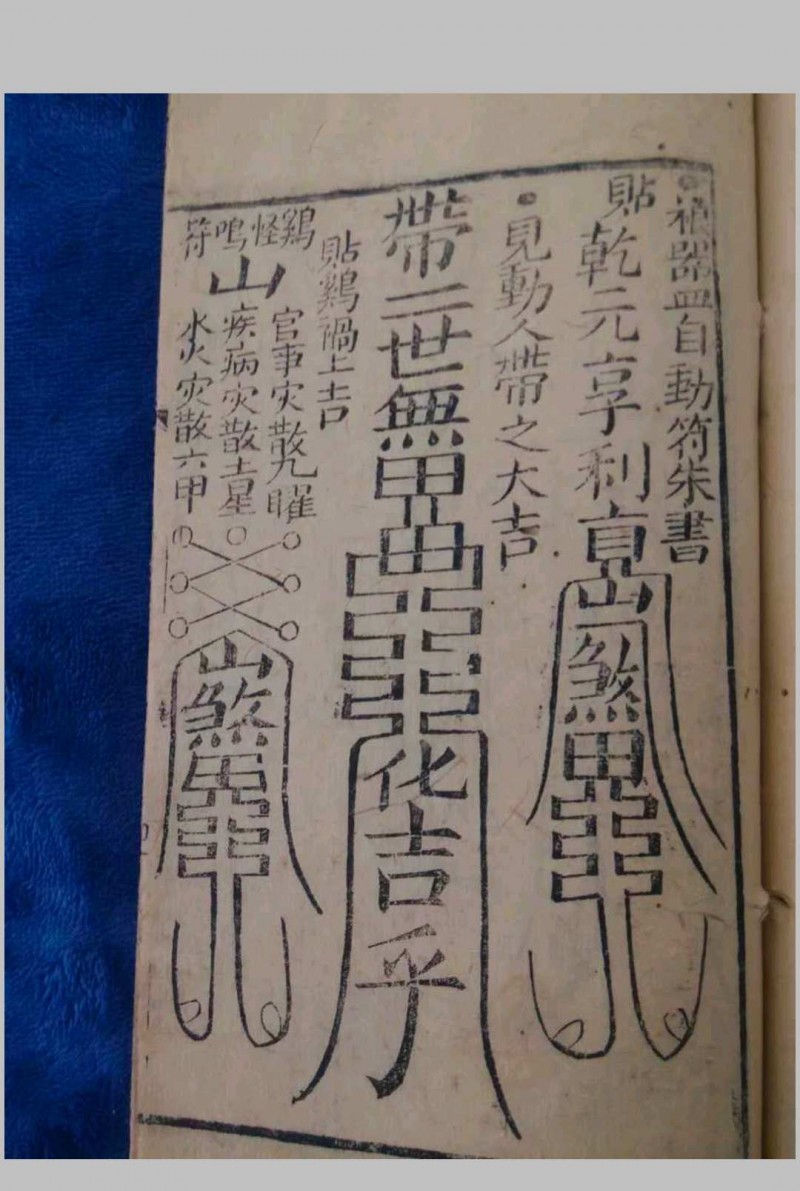 禳器皿自動符朱書
貼乾元亨利貞
山煞鬼
見動人帶之大吉
帶二世無鬼
化吉乎
貼鷄禍上吉
鷄怪鳴符
山
官事灾散九曜
疾病灾散土星
水火灾散六甲
山煞鬼